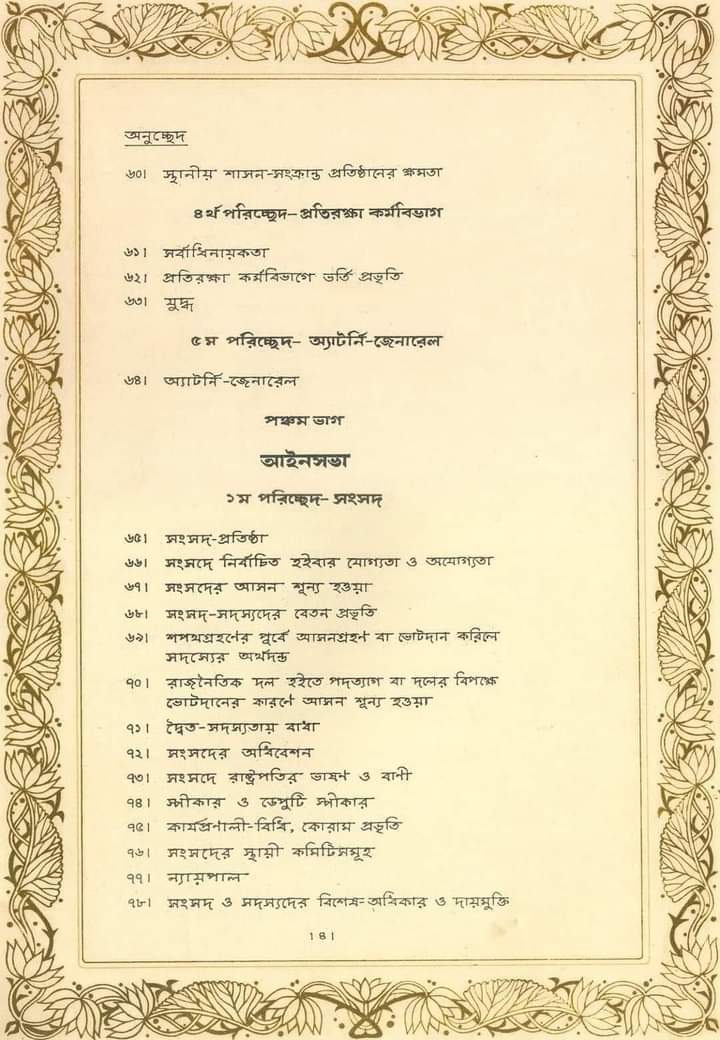 অনুচ্ছেদ
৬০। স্থানীয় শাসন-সংক্রান্ত প্রতিষ্ঠানের ক্ষমতা
৪র্থ পরিচ্ছেদ- প্রতিরক্ষা কর্মবিভাগ
৬১। সর্বাধিনায়কতা
৬২। প্রতিরক্ষা কর্মবিভাগে ভর্তি প্রভৃতি
৬৩। যুদ্ধ
৫ম পরিচ্ছেদ- অ্যাটর্নি-জেনারেল
৬৪। অ্যাটর্নি-জেনারেল
পঞ্চম ভাগ
আইনসভা
১ম পরিচ্ছেদ- সংসদ
৬৫। সংসদ-প্রতিষ্ঠা
৬৬। সংসদে নির্বাচিত হইবার যোগ্যতা ও অযোগ্যতা
৬৭। সংসদের আসন শূন্য হওয়া
৬৮। সংসদ-সদস্যদের বেতন প্রভৃতি
৬৯। শপথগ্রহণের পূর্বে আসনগ্রহণ বা ভোটদান করিলে
সদস্যের অর্থদন্ড
৭০। রাজনৈতিক দল হইতে পদত্যাগ বা দলের বিপক্ষে
ভোটদানের কারণে আসন শূন্য হওয়া
৭১। দ্বৈত-সদস্যতায় বাধা
৭২। সংসদের অধিবেশন
৭৩। সংসদে রাষ্ট্রপতির ভাষণ ও বাণী
৭৪। স্পীকার ও ডেপুটি স্পীকার
৭৫। কার্যপ্রণালী-বিধি, কোরাম প্রভৃতি
৭৬। সংসদের স্থায়ী কমিটিসমূহ
৭৭। ন্যায়পাল
৭৮। সংসদ ও সদস্যদের বিশেষ-অধিকার ও দায়মুক্তি
।৪।